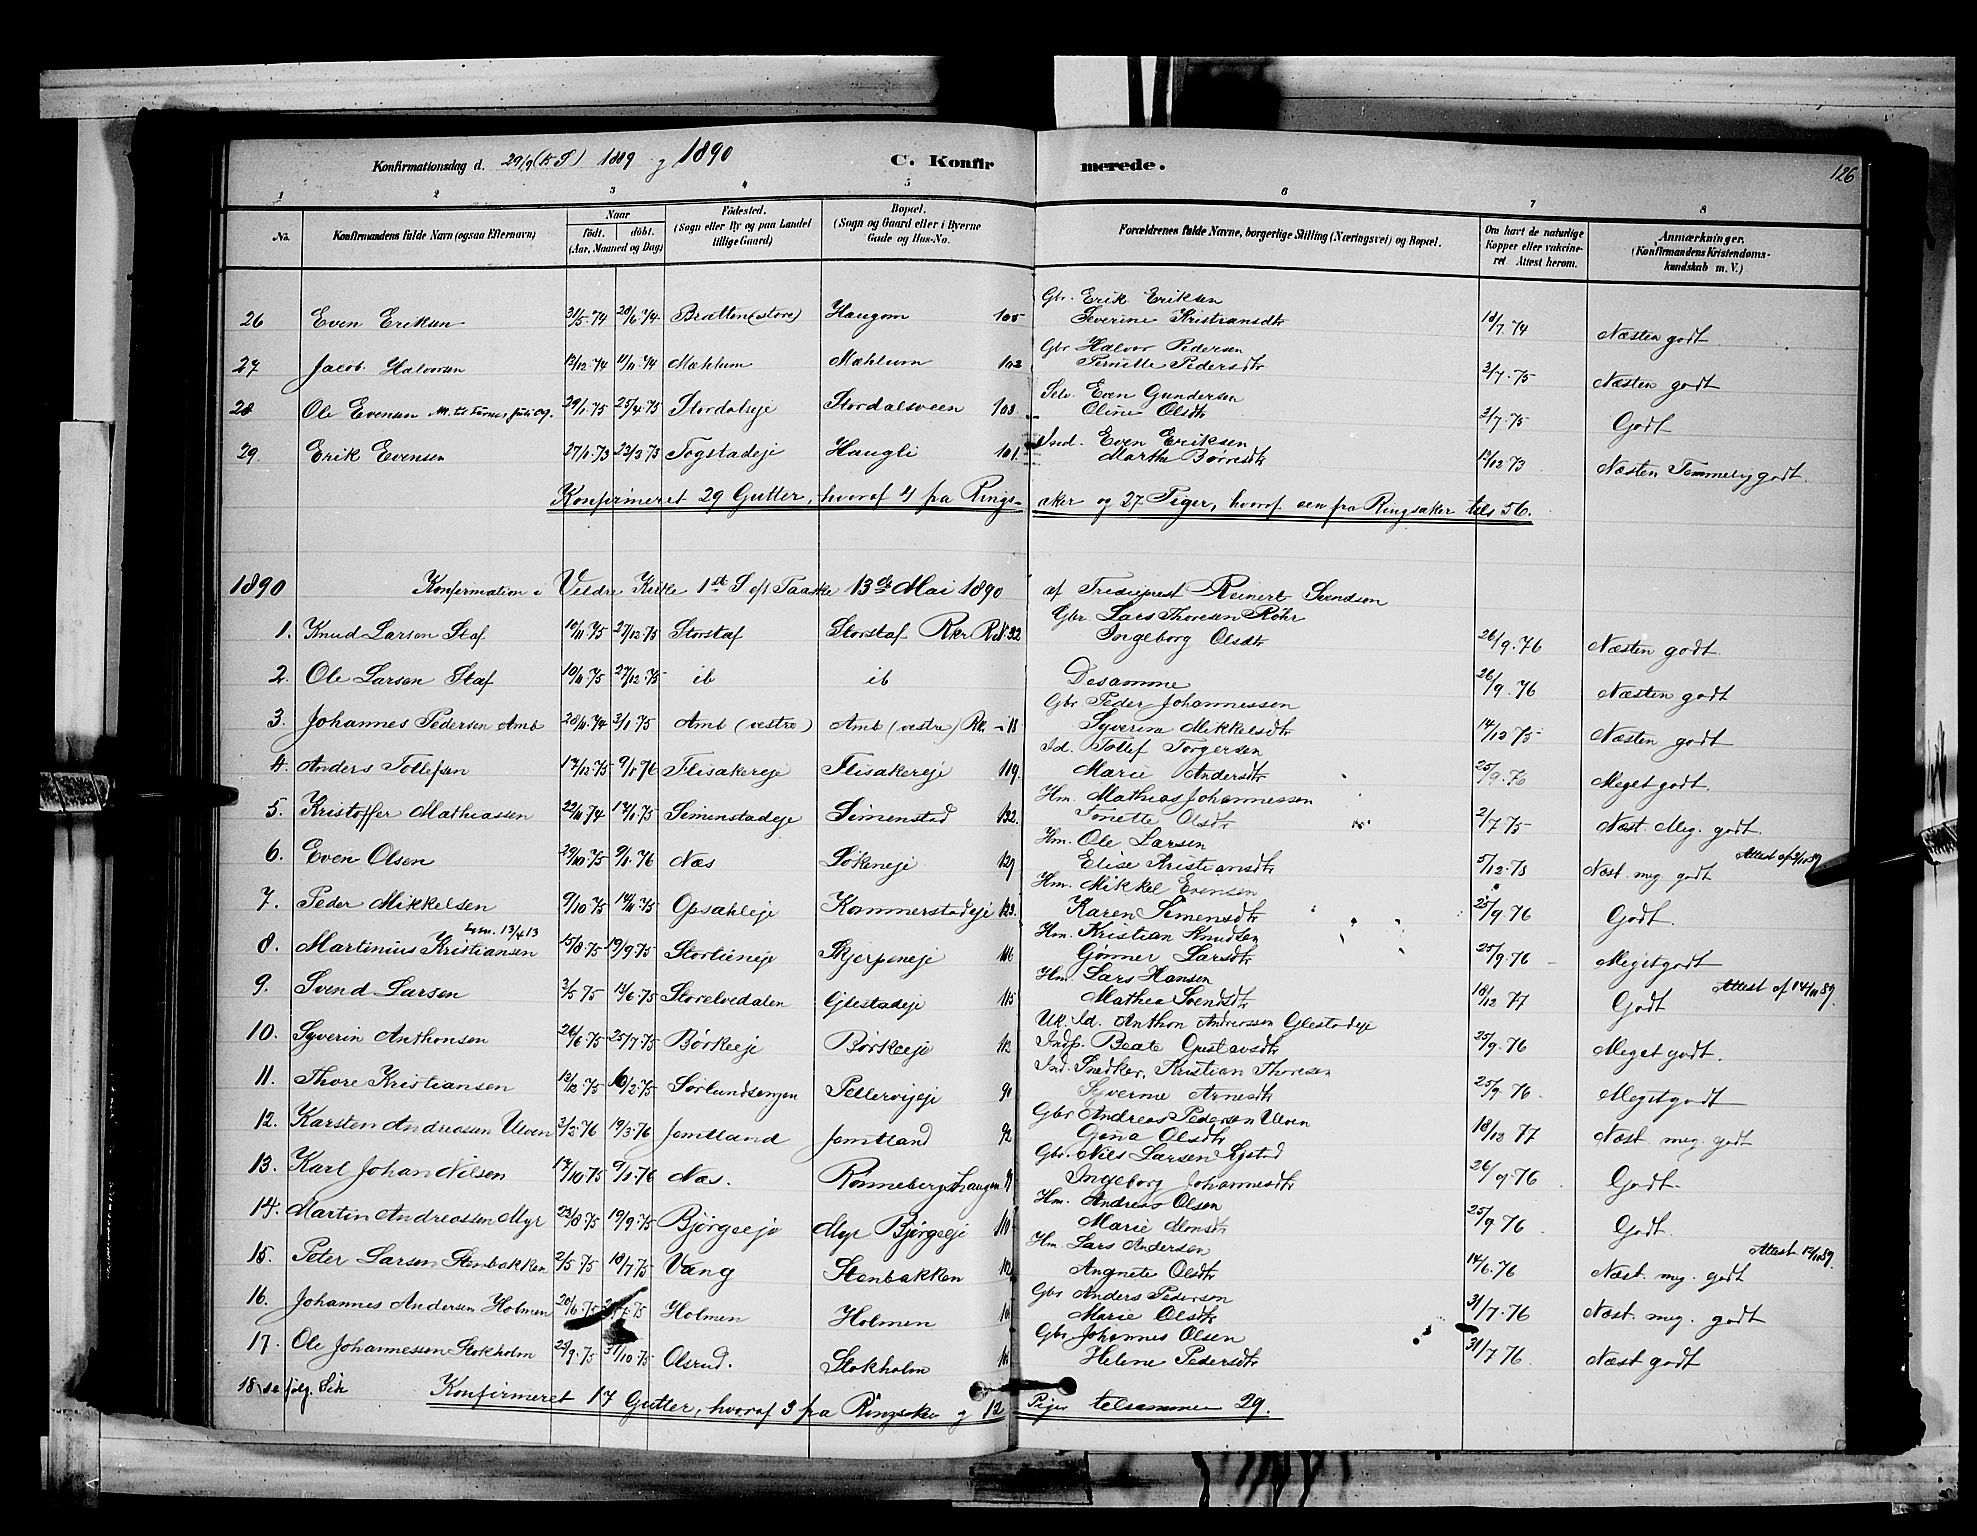 Konfirmationsdag d. 29/9 1889 og 1890 C. Konfirmerede. 126
1 2 3 4 5 6 7 8
No. Konfirmandens fulde Navn (ogsaa Efternavn) Naar födt. döbt. (Aar, Maaned og Dag) Födested. (Sogn eller By og paa Landet tillige Gaard) Bopæl. (Sogn og Gaard eller i Byerne Gade og Hus-No. Forældrenes fulde Navne, borgerlige Stilling (Næringsvei) og Bopæl. Om havt de naturlige Kopper eller vakcineret Attest herom. Anmærkninger. (Konfirmandens Kristendomskundskab m. V.)
26 Even Eriksen 31/5 74 28/6 74 Bratten (store) Haugom 105 Gbr. Erik Eriksen Severine Kristiansdtr 18/7 74 Næsten godt
27 Jacob Halvorsen 11/11 74 Mæhlum Mæhlum 102 Gbr Halvor Pedersen Pernille Pedersdtr 2/7 75 Næsten godt
28 Ole Evensen 29/1 75 25/4 75 Stordalseje Stordalsveen 108 Selv. Even Gundersen Oline Olsdtr 2/7 75 Godt
29. Erik Evensen 27/1 73 23/3 73 Togstadeje Haugli 101. Ind. Even Eriksen Marthe Børresdtr 12/12 73 Næsten Temmelig godt.
Konfirmeret 29 Gutter, hvoraf 4 fra Ringsaker og 27 Piger, hvoraf een fra Ringsaker tils 56.
1890 Konfirmation i Veldre Kirke 1st S. eft Paaske 13de Mai 1890 af Trediepræst Reinert Svendsen
1. Knud Larsen Staf 10/11 75 27/12 75 Storstaf Storstaf Rkr. 22 Gbr. Lars Thoresen Røhr Ingeborg Olsdtr 26/9 76 Næsten godt
2. Ole Larsen Staf 10/11 75 27/12 75 ib ib Desamme 26/9 76 Næsten godt
3. Johannes Pedersen Amb 28/11 74 3/1 75 Amb (vestre) Amb (vestre) Rk. 18 Gbr Peder Johannessen Syverin Mikkelsdtr 14/12 75 Næsten godt
4. Anders Tollefsen 17/12 75 9/1 76 Flisakereje Flisakereje 119. Id. Tollef Torgersen Marie Andersdtr 25/9 76 Meget godt.
5. Kristoffer Mathiassen 22/11 74 17/1 75 Simenstadeje Simenstad 132. Hm. Mathias Johannessen Tonette Olsdtr 2/7 75 Næst. Meg. godt.
6. Even Olsen 29/10 75 9/1 76 Næs Søkneje 129 Hm. Ole Larsen Elise Kristiansdtr 5/12 78 Næst. meg godt
7. Peder Mikkelsen 9/10 75 14/11 75 Opsahleje Kammerstadeje 123. Hm. Mikkel Evensen Karen Simensdtr 25/9 76 Godt.
8. Martinius Kristiansen 15/8 75 19/9 75 Stortieneje Skjerpeneje 116 Hm. Kristian Knudsen Gønner Larsdtr 25/9 76 Meget godt
9. Svend Larsen 3/5 75 13/6 75 Storelvedalen Glestadeje 115 Hm. Lars Hansen Mathea Svendsdtr 18/12 77 Godt Attest af 14/11 89.
10. Syverin Anthonsen 26/6 75 25/7 75 Børkeeje Børkeeje 113 Uk. Id. Anthon Andreassen Glestadeje Beate Gustavsdtr 25/9 76 Meget godt.
11. Thore Kristiansen Sørlundsengen Pellervigeje 91 Ind. Snedker, Kristian Thoresen Syverine Arnesdtr 25/9 76. Meget godt
12. Karsten Andreassen Ulven 19/3 76 Jemtland Jemtland 92 Gbr Andreas Pedersen Ulven Gina Olsdtr 18/12 77 Næst. meg. godt
13. Karl Johan Nilsen 17/10 75 9/1 76 Næs. Rønneberg Gbr. Nils Larsen Ingeborg Johannesdtr 26/9 76 Godt
14. Martin Andreassen Myr 23/8 75 19/9 75 Bjørgeeje Myr Bjørgeeje Hm. Andreas Olsen Marie Monsdtr 25/9 76 Godt.
15. Peter Larsen Stenbakken 2/5 75 18/7 75 Vang Stenbakken Hm. Lars Andersen Angnete Olsdtr 14/6 76 Næst. meg. godt
16. Johannes Andersen Holmen 20/6 75 Holmen Holmen Gbr Anders Pedersen Marie Olsdtr 31/7 76 Næst. meg. godt
17. Ole Johannessen Stokholm 24/9 75 31/10 75 Olsrud. Stokholm Gbr Johannes Olsen Helene Pedersdtr 31/7 76 Næst godt
18 se følg. Side Konfirmeret 17 Gutter, hvoraf 3 fra Ringsaker og 12 Piger tilsammen 29.